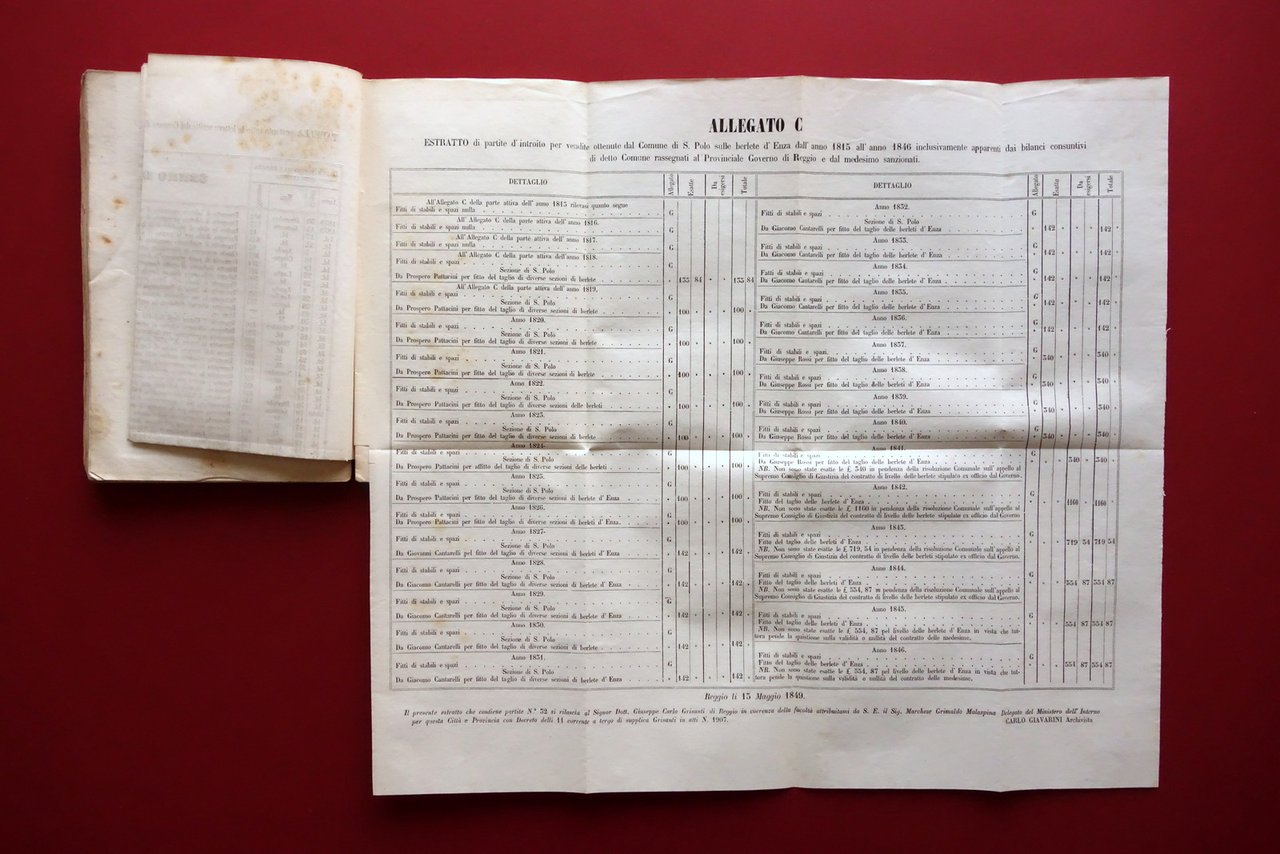 ALLEGATO C
ESTRATTO di partite d'introito per vendite ottenute dal Comune di S. Polo sulle berlete d'Enza dall'anno 1815 all'anno 1846 inclusivamente apparenti dai bilanci consuntivi
di detto Comune rassegnati al Provinciale Governo di Reggio e dal medesimo sanzionati.
DETTAGLIO Allegato Esatte Da esigersi Totale
All'Allegato C della parte attiva dell'anno 1815 rilevasi quanto segue
Fitti di stabili e spazi nulla G
All'Allegato C della parte attiva dell'anno 1816.
Fitti di stabili e spazi nulla G
All'Allegato C della parte attiva dell'anno 1817.
Fitti di stabili e spazi nulla G
All'Allegato C della parte attiva dell'anno 1818.
Fitti di stabili e spazi G
Sezione di S. Polo
Da Prospero Pattacini per fitto del taglio di diverse sezioni di berlete 135 84 135 84
All'Allegato C della parte attiva dell'anno 1819.
Fitti di stabili e spazi G
Sezione di S. Polo
Da Prospero Pattacini per fitto del taglio di diverse sezioni di berlete 100 100
Anno 1820.
Fitti di stabili e spazi G
Sezione di S. Polo
Da Prospero Pattacini per fitto del taglio di diverse sezioni di berlete 100 100
Anno 1821.
Fitti di stabili e spazi G
Sezione di S. Polo
Da Prospero Pattacini per fitto del taglio di diverse sezioni di berlete 100 100
Anno 1822.
Fitti di stabili e spazi G
Sezione di S. Polo
Da Prospero Pattacini per fitto del taglio di diverse sezioni delle berleti 100 100
Anno 1823.
Fitti di stabili e spazi G
Sezione di S. Polo
Da Prospero Pattacini per fitto del taglio di diverse sezioni di berlete 100 100
Anno 1824.
Fitti di stabili e spazi G
Sezione di S. Polo
Da Prospero Pattacini per affitto del taglio di diverse sezioni delle berleti 100 100
Anno 1825.
Fitti di stabili e spazi G
Sezione di S. Polo
Da Prospero Pattacini per fitto del taglio di diverse sezioni di berleti d'Enza 100 100
Anno 1826.
Fitti di stabili e spazi G
Sezione di S. Polo
Da Prospero Pattacini per fitto del taglio di diverse sezioni di berleti d'Enza. 100 100
Anno 1827.
Fitti di stabili e spazi G
Sezione di S. Polo
Da Giovanni Cantarelli pel fitto del taglio di diverse sezioni di berleti d'Enza 142 142
Anno 1828.
Fitti di stabili e spazi G
Sezione di S. Polo
Da Giacomo Cantarelli per fitto del taglio di diverse sezioni di berlete d'Enza 142 142
Anno 1829.
Fitti di stabili e spazi G
Sezione di S. Polo
Da Giacomo Cantarelli per fitto del taglio di diverse sezioni di berlete d'Enza 142 142
Anno 1830.
Fitti di stabili e spazi G
Sezione di S. Polo
Da Giacomo Cantarelli per fitto del taglio di diverse sezioni di berlete 142 142
Anno 1831.
Fitti di stabili e spazi G
Sezione di S. Polo
Da Giacomo Cantarelli per fitto del taglio di diverse sezioni di berlete d'Enza 142 142
DETTAGLIO Allegato Esatte Da esigersi Totale
Anno 1832.
Fitti di stabili e spazi G
Sezione di S. Polo
Da Giacomo Cantarelli per fitto del taglio delle berleti d'Enza 142 142
Anno 1833.
Fitti di stabili e spazi G
Da Giacomo Cantarelli per fitto del taglio delle berleti d'Enza 142 142
Anno 1834.
Fatti di stabili e spazi G
Da Giacomo Cantarelli per fitto del taglio delle berlete d'Enza 142 142
Anno 1835.
Fitti di stabili e spazi G
Da Giacomo Cantarelli per fitto del taglio delle berlete d'Enza 142 142
Anno 1836.
Fitti di stabili e spazi G
Da Giacomo Cantarelli per fitto del taglio delle berlete d'Enza 142 142
Anno 1837.
Fitti di stabili e spazi. G
Da Giuseppe Rossi per fitto del taglio delle berlete d'Enza 340 340
Anno 1838.
Fitti di stabili e spazi G
Da Giuseppe Rossi per fitto del taglio delle berlete d'Enza 340 340
Anno 1839.
Fitti di stabili e spazi G
Da Giuseppe Rossi per fitto del taglio delle berlete d'Enza 340 340
Anno 1840.
Fitti di stabili e spazi G
Da Giuseppe Rossi per fitto del taglio delle berlete d'Enza 340 340
Anno 1841.
Fitti di stabili e spazi G
Da Giuseppe Rossi per fitto del taglio delle berlete d'Enza 340 340
NB. Non sono state esatte le £ 340 in pendenza della risoluzione Comunale sull'appello al
Supremo Consiglio di Giustizia del contratto di livello delle berlete stipulato ex officio dal Governo.
Anno 1842.
Fitti di stabili e spazi G
Fitto del taglio delle berlete d'Enza 1160 1160
NB. Non sono state esatte le £ 1160 in pendenza della risoluzione Comunale sull'appello al
Supremo Consiglio di Giustizia del contratto di livello delle berlete stipulato ex officio dal Governo
Anno 1843.
Fitti di stabili e spazi G
Fitto del taglio delle berleti d'Enza 719 54 719 54
NB. Non sono state esatte le £ 719, 54 in pendenza della risoluzione Comunale sull'appello al
Supremo Consiglio di Giustizia del contratto di livello delle berlete stipulato ex officio dal Governo.
Anno 1844.
Fitti di stabili e spazi G
Fitto del taglio delle berleti d'Enza 554 87 554 87
NB. Non sono state esatte le £ 554, 87 in pendenza della risoluzione Comunale sull'appello al
Supremo Consiglio di Giustizia del contratto di livello delle berlete stipulato ex officio dal Governo.
Anno 1845.
Fitti di stabili e spazi G
Fitto del taglio delle berleti d'Enza 554 87 554 87
NB. Non sono state esatte le £ 554, 87 pel livello delle berlete d'Enza in vista che tut-
tora pende la quistione sulla validità o nullità del contratto delle medesime.
Anno 1846.
Fitti di stabili e spazi G
Fitto del taglio delle berlete d'Enza 554 87 554 87
NB. Non sono state esatte le £ 554, 87 pel livello delle berlete d'Enza in vista che tut-
tora pende la quistione sulla validità o nullità del contratto delle medesime.
Reggio li 15 Maggio 1849.
Il presente estratto che contiene partite N.° 32 si rilascia al Signor Dott. Giuseppe Carlo Grisanti di Reggio in coerenza della facoltà attribuitami da S. E. il Sig. Marchese Grimaldo Malaspina Delegato del Ministero dell'Interno
per questa Città e Provincia con Decreto delli 11 corrente a tergo di supplica Grisanti in atti N. 1907. CARLO GIAVARINI Archivista